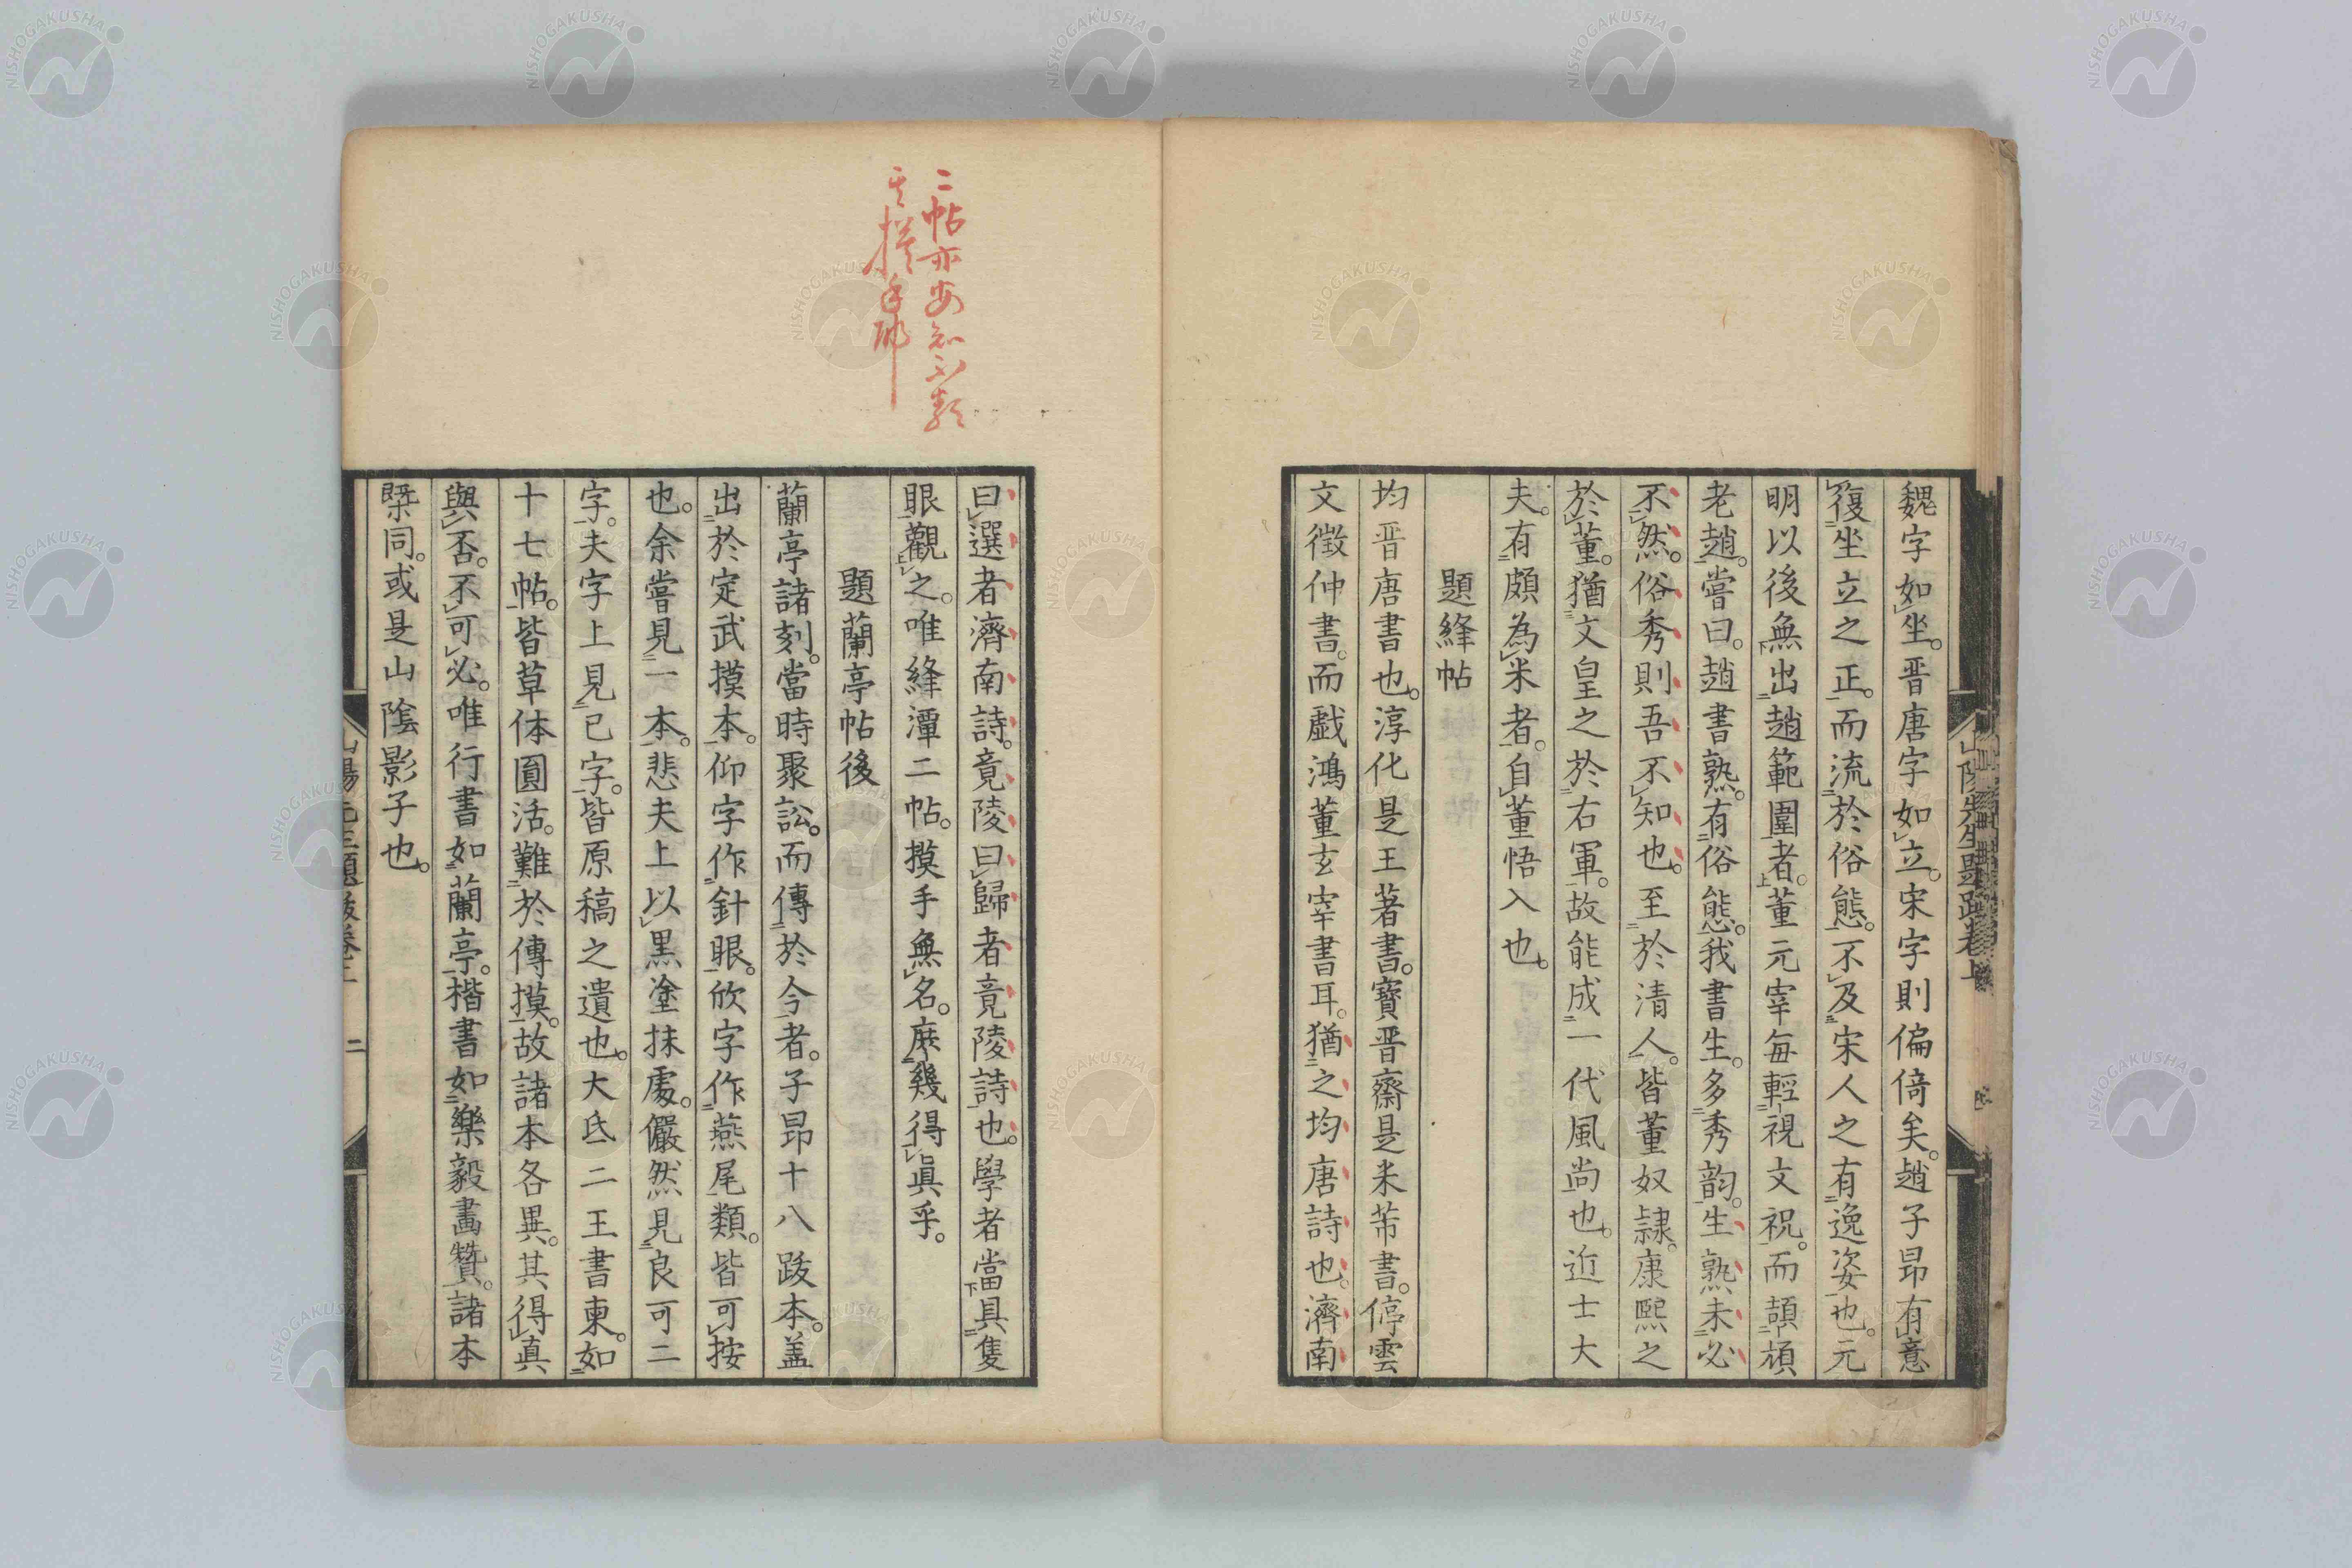 魏字如坐。晋唐字如立。宋字則偏倚矣。趙子昂有意
復坐立之正。而流於俗態。不及宋人之有逸姿也。元
明以後無出趙範圍者。董元宰每輕視文祝。而頡頏
老趙。嘗曰。趙書熟。有俗態。我書生。多秀韵。生熟未必
不然。俗秀則吾不知也。至於清人。皆董奴隷。康熙之
於董。猶文皇之於右軍。故能成一代風尚也。近士大
夫。有頗為米者。自董悟入也。
題絳帖
均晋唐書也。淳化是王著書。寶晋齋是米芾書。停雲
文徴仲書。而戯鴻董玄宰書耳。猶之均唐詩也。濟南
山陽先生題跋卷上
曰選者濟南詩。竟陵曰歸者竟陵詩也。學者當具隻
眼觀之。唯絳潭二帖。摸手無名。庶幾得眞乎。
題蘭亭帖後
蘭亭諸刻。當時聚訟。而傳於今者。子昂十八跋本。盖
出於定武摸本。仰字作針眼。欣字作燕尾類。皆可按
也。余嘗見一本。悲夫上以黒塗抹處。儼然見良可二
字。夫字上見已字。皆原稿之遺也。大氐二王書柬。如
十七帖。皆草体圓活。難於傳摸。故諸本各異。其得真
與否。不可必。唯行書如蘭亭。楷書如樂毅畵贊。諸本
槩同。或是山陰影子也。
二
二帖亦安知不類
NISHOGAKUSHA